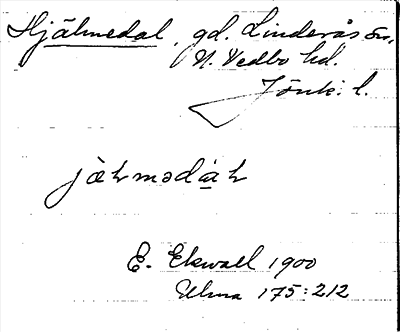 Hjälmedal, gd. Linderås sn,
N. Vedbo hd.
Jönk. l.
jä̀ɫmədàɫ
E. Ekwall 1900
Ulma 175:212